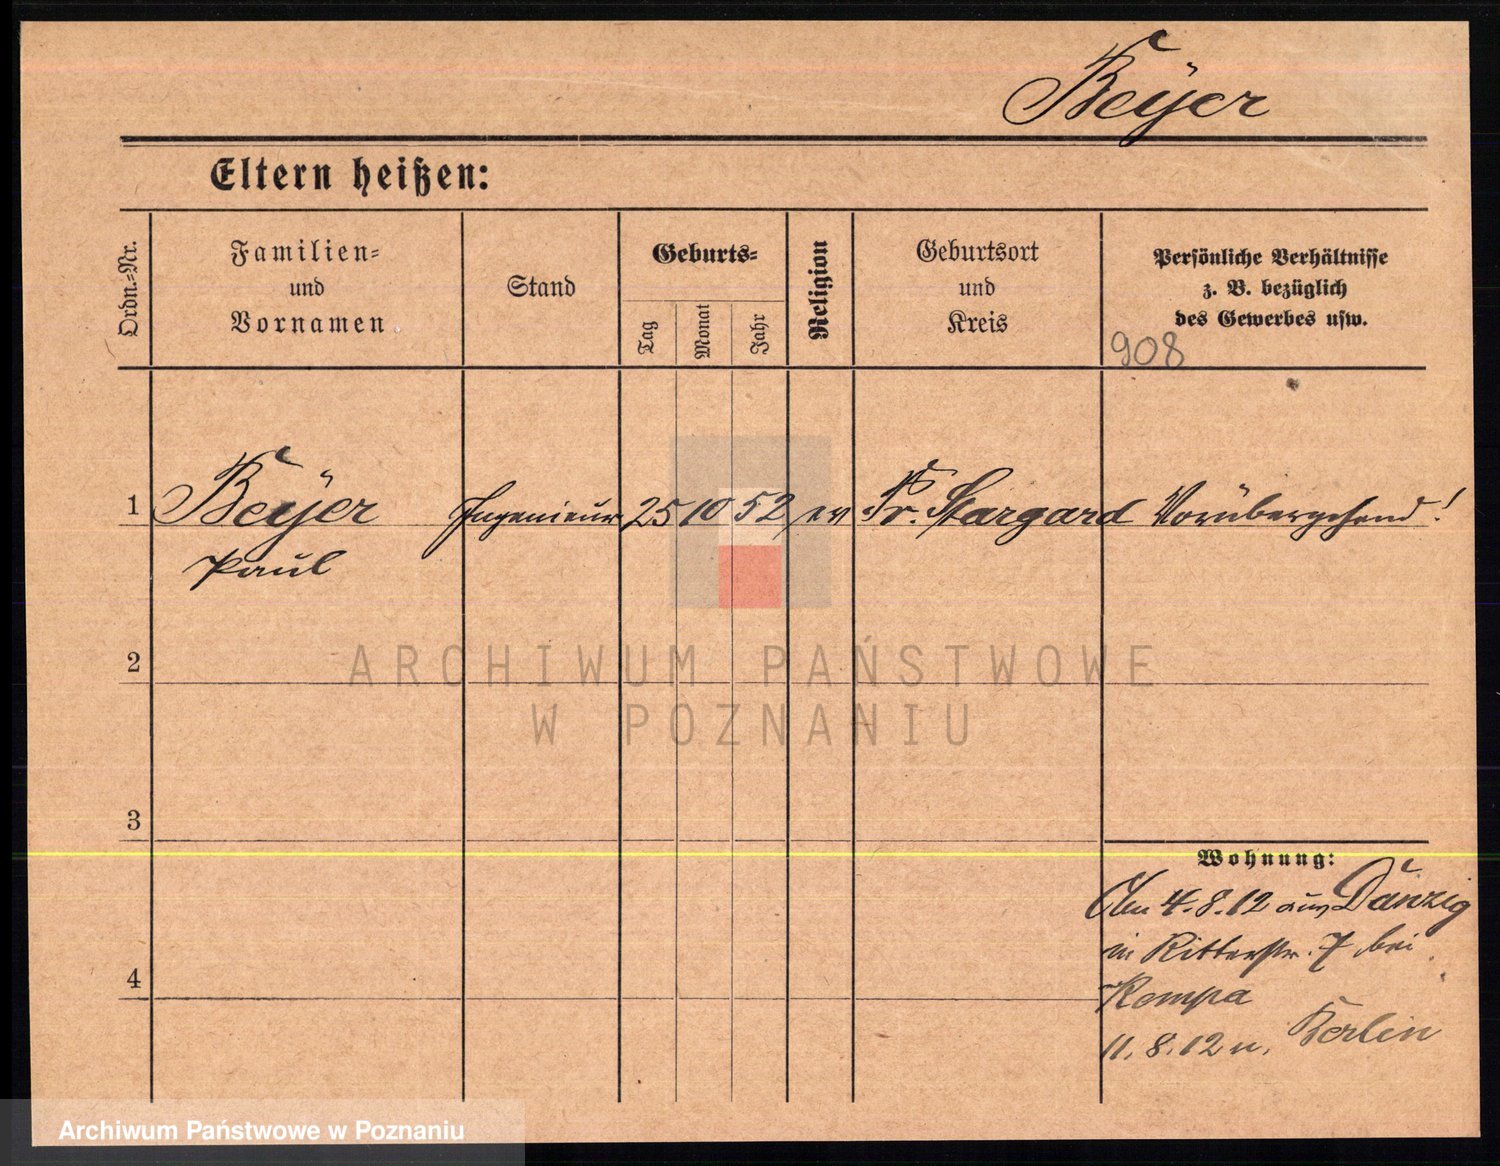 Beÿer
Eltern heißen:
Ordn.-Nr.
Familien-
und
Vornamen
Stand
Geburts-
Tag
Monat
Jahr
Religion
Geburtsort
und
Kreis
Persönliche Verhältnisse
z. B. bezüglich
des Gewerbes usw.
908
1 Beÿer Ingenieur 25 10 52 ev Pr. Stargard Vorübergehend!
Paul
2
ARCHIWUM PAŃSTWOWE
W POZNANIU
3
Wohnung:
Am 4.8.12 aus Danzig
in Ritterstr. 7 bei
4
Kempa
11.8.12 n. Berlin
Archiwum Państwowe w Poznaniu